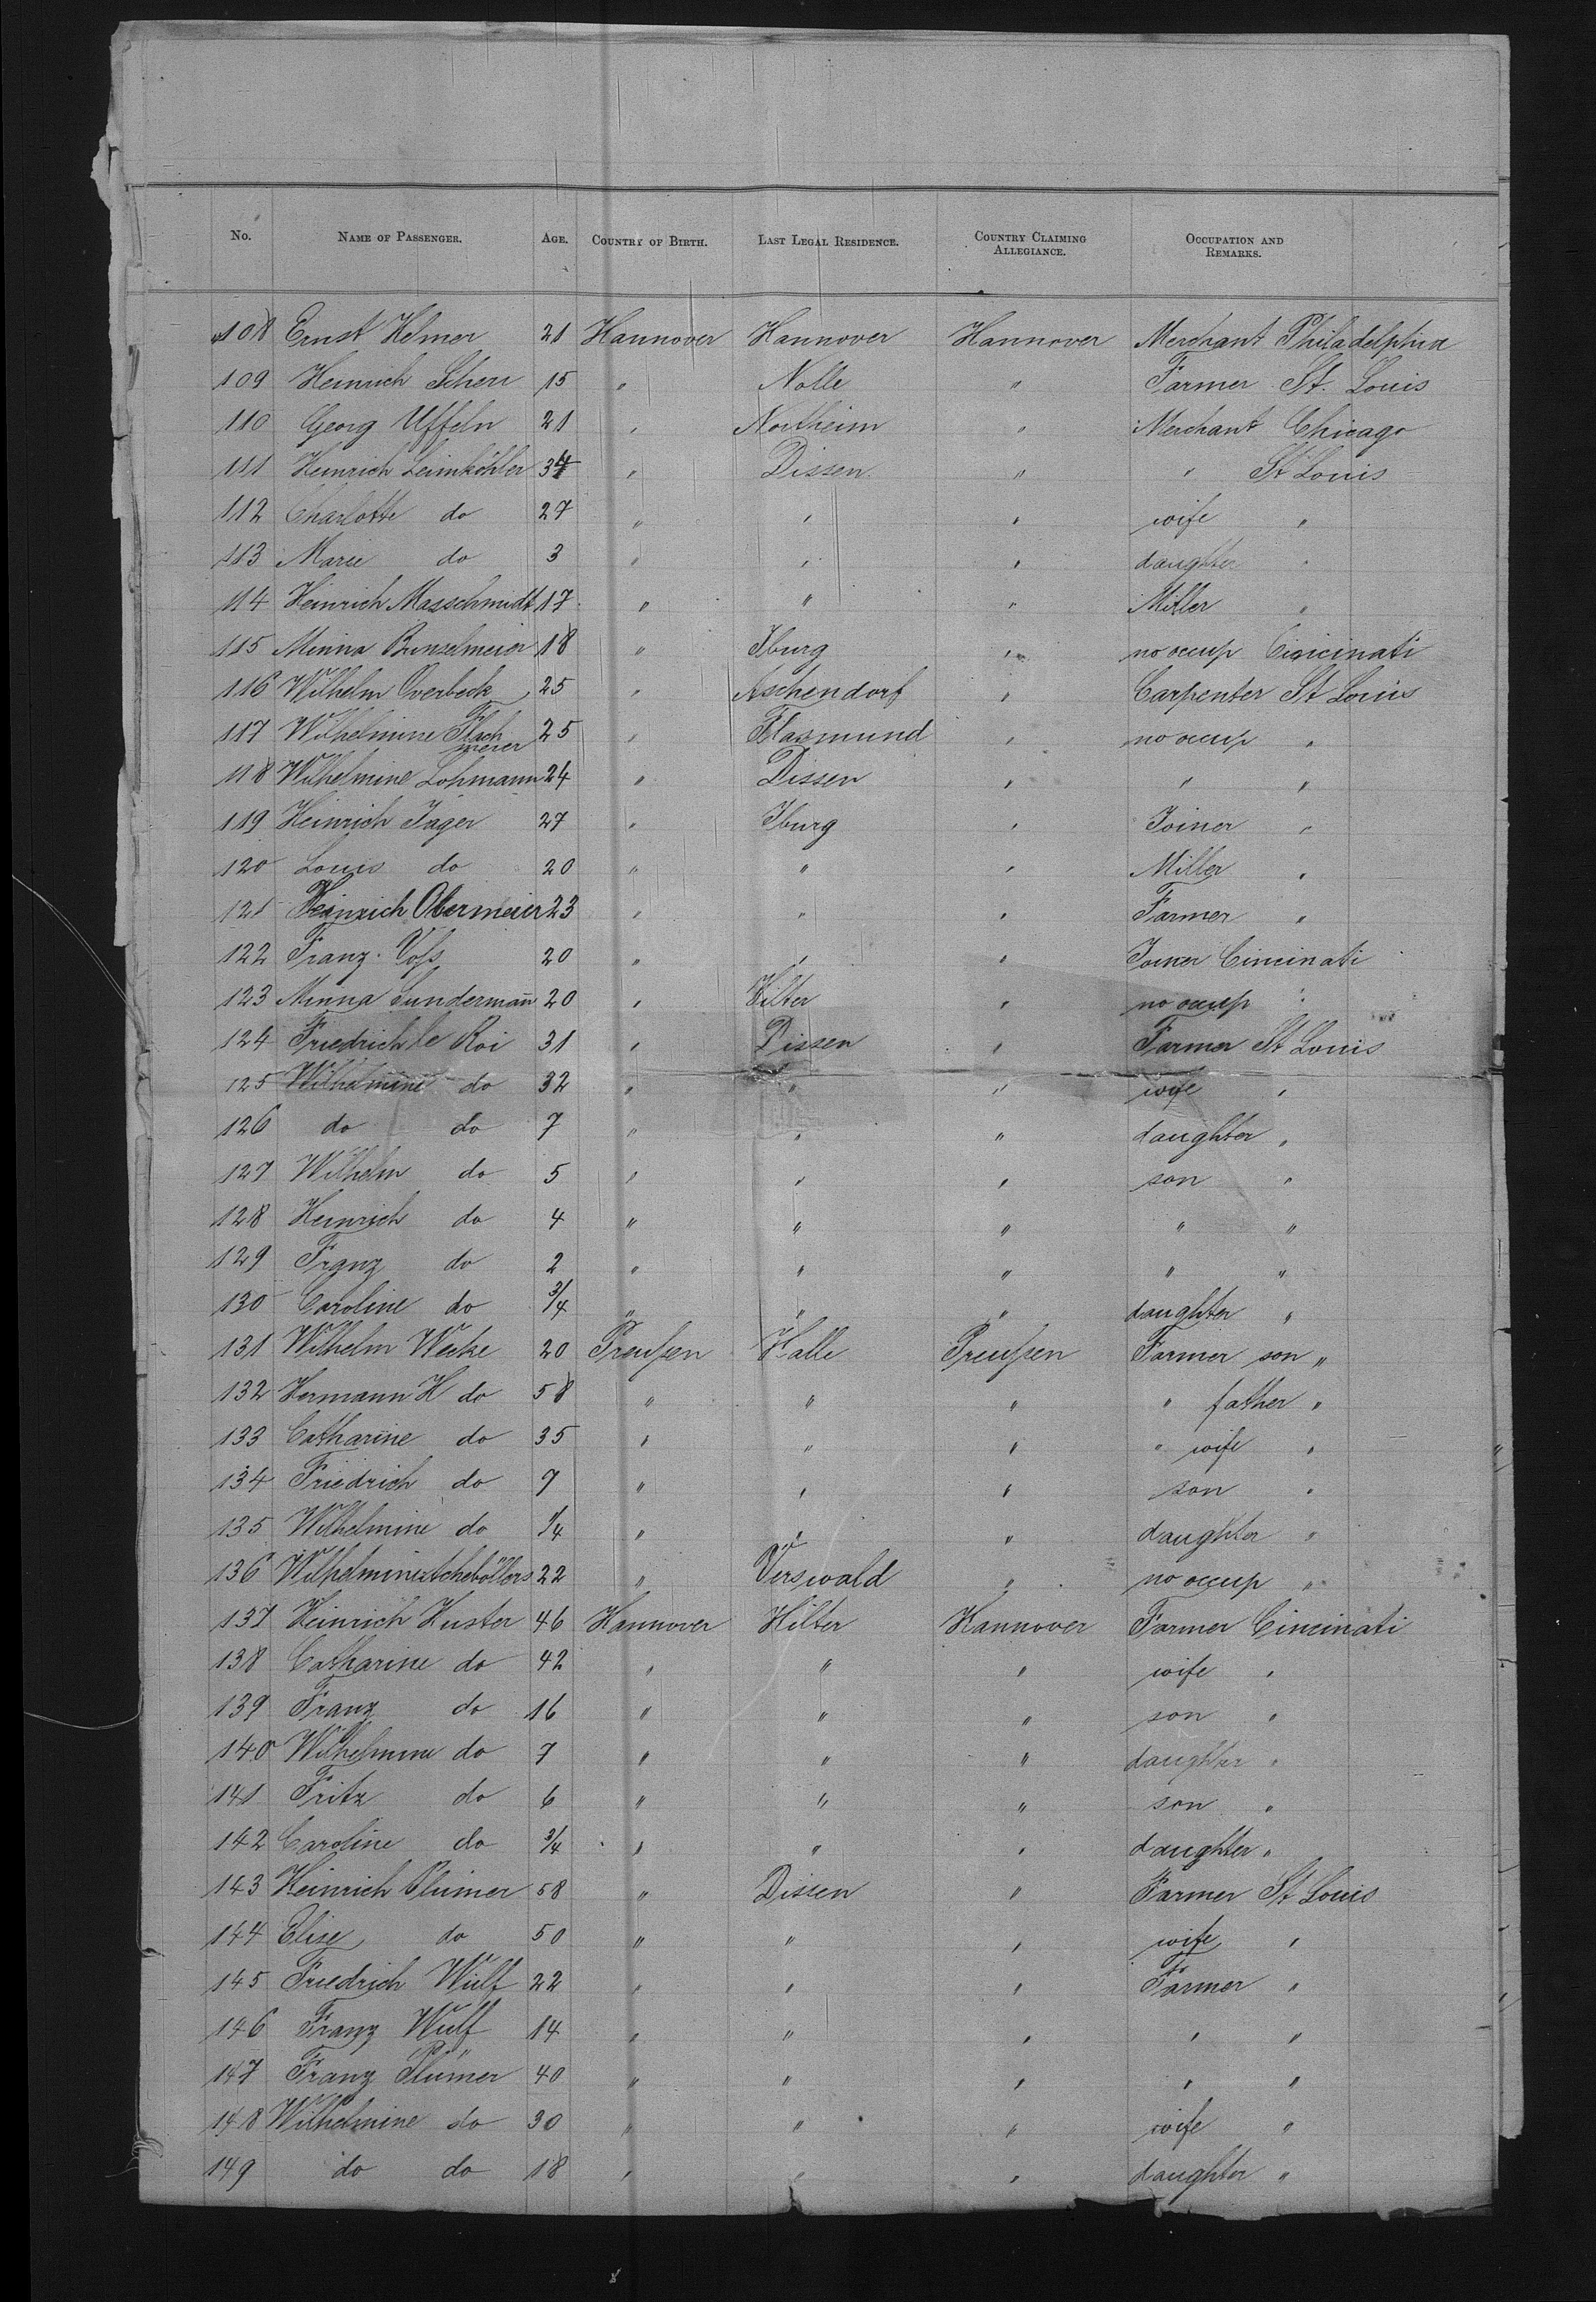 No. NAME OF PASSENGER. AGE. COUNTRY OF BIRTH. LAST LEGAL RESIDENCE. COUNTRY CLAIMING ALLEGIANCE. OCCUPATION AND REMARKS.
108 Ernst Helmer 21 Hannover Hannover Hannover Merchant Philadelphia
109 Heinrich Scherr 15 " Nolle " Farmer St. Louis
110 Georg Uffeln 21 " Northeim " Merchant Chicago
111 Heinrich Leimkühler 34 " Dissen " " St Louis
112 Charlotte do 27 " " " wife "
113 Marie do 3 " " " daughter "
114 Heinrich Masschmidt 17 " " " Miller "
115 Minna Bunselmeier 18 " Iburg " no occup Cinicinati
116 Wilhelm Overbeck 25 " Aschendorf " Carpenter St Louis
117 Wilhelmine Flachmeier 25 " " no occup "
118 Wilhelmine Lohmann 24 " Dissen " " "
119 Heinrich Jäger 27 " Iburg " Joiner "
120 Louis do 20 " " " Miller "
121 Heinrich Obermeier 23 " " " Farmer "
122 Franz Voſs 20 " " " Joiner Cincinati
123 Minna Sundermañ 20 " Hilter " no occup "
124 Friedrich le Roi 31 " Dissen " Farmer St Louis
125 Wilhelmine do 32 " " " wife "
126 do do 7 " " " daughter "
127 Wilhelm do 5 " " " son "
128 Heinrich do 4 " " " " "
129 Franz do 2 " " " " "
130 Caroline do 3/4 " " " daughter "
131 Wilhelm Wecke 20 Preuſsen Halle Preuſsen Farmer son "
132 Hermann H do 58 " " " " father "
133 Catharine do 35 " " " " wife "
134 Friedrich do 7 " " " son "
135 Wilhelmine do 1/4 " " " daughter "
136 Wilhelmine 22 " Verswald " no occup "
137 Heinrich Huster 46 Hannover Hilter Hannover Farmer Cincinati
138 Catharine do 42 " " " wife "
139 Franz do 16 " " " son "
140 Wilhelmine do 7 " " " daughter "
141 Fritz do 6 " " " son "
142 Caroline do 3/4 " " " daughter "
143 Heinrich Plümer 58 " Dissen " Farmer St Louis
144 Elise do 50 " " " wife "
145 Friedrich Wulf 22 " " " Farmer "
146 Franz Wulf 14 " " " " "
147 Franz Plümer 40 " " " " "
148 Wilhelmine do 30 " " " wife "
149 do do 18 " " " daughter "